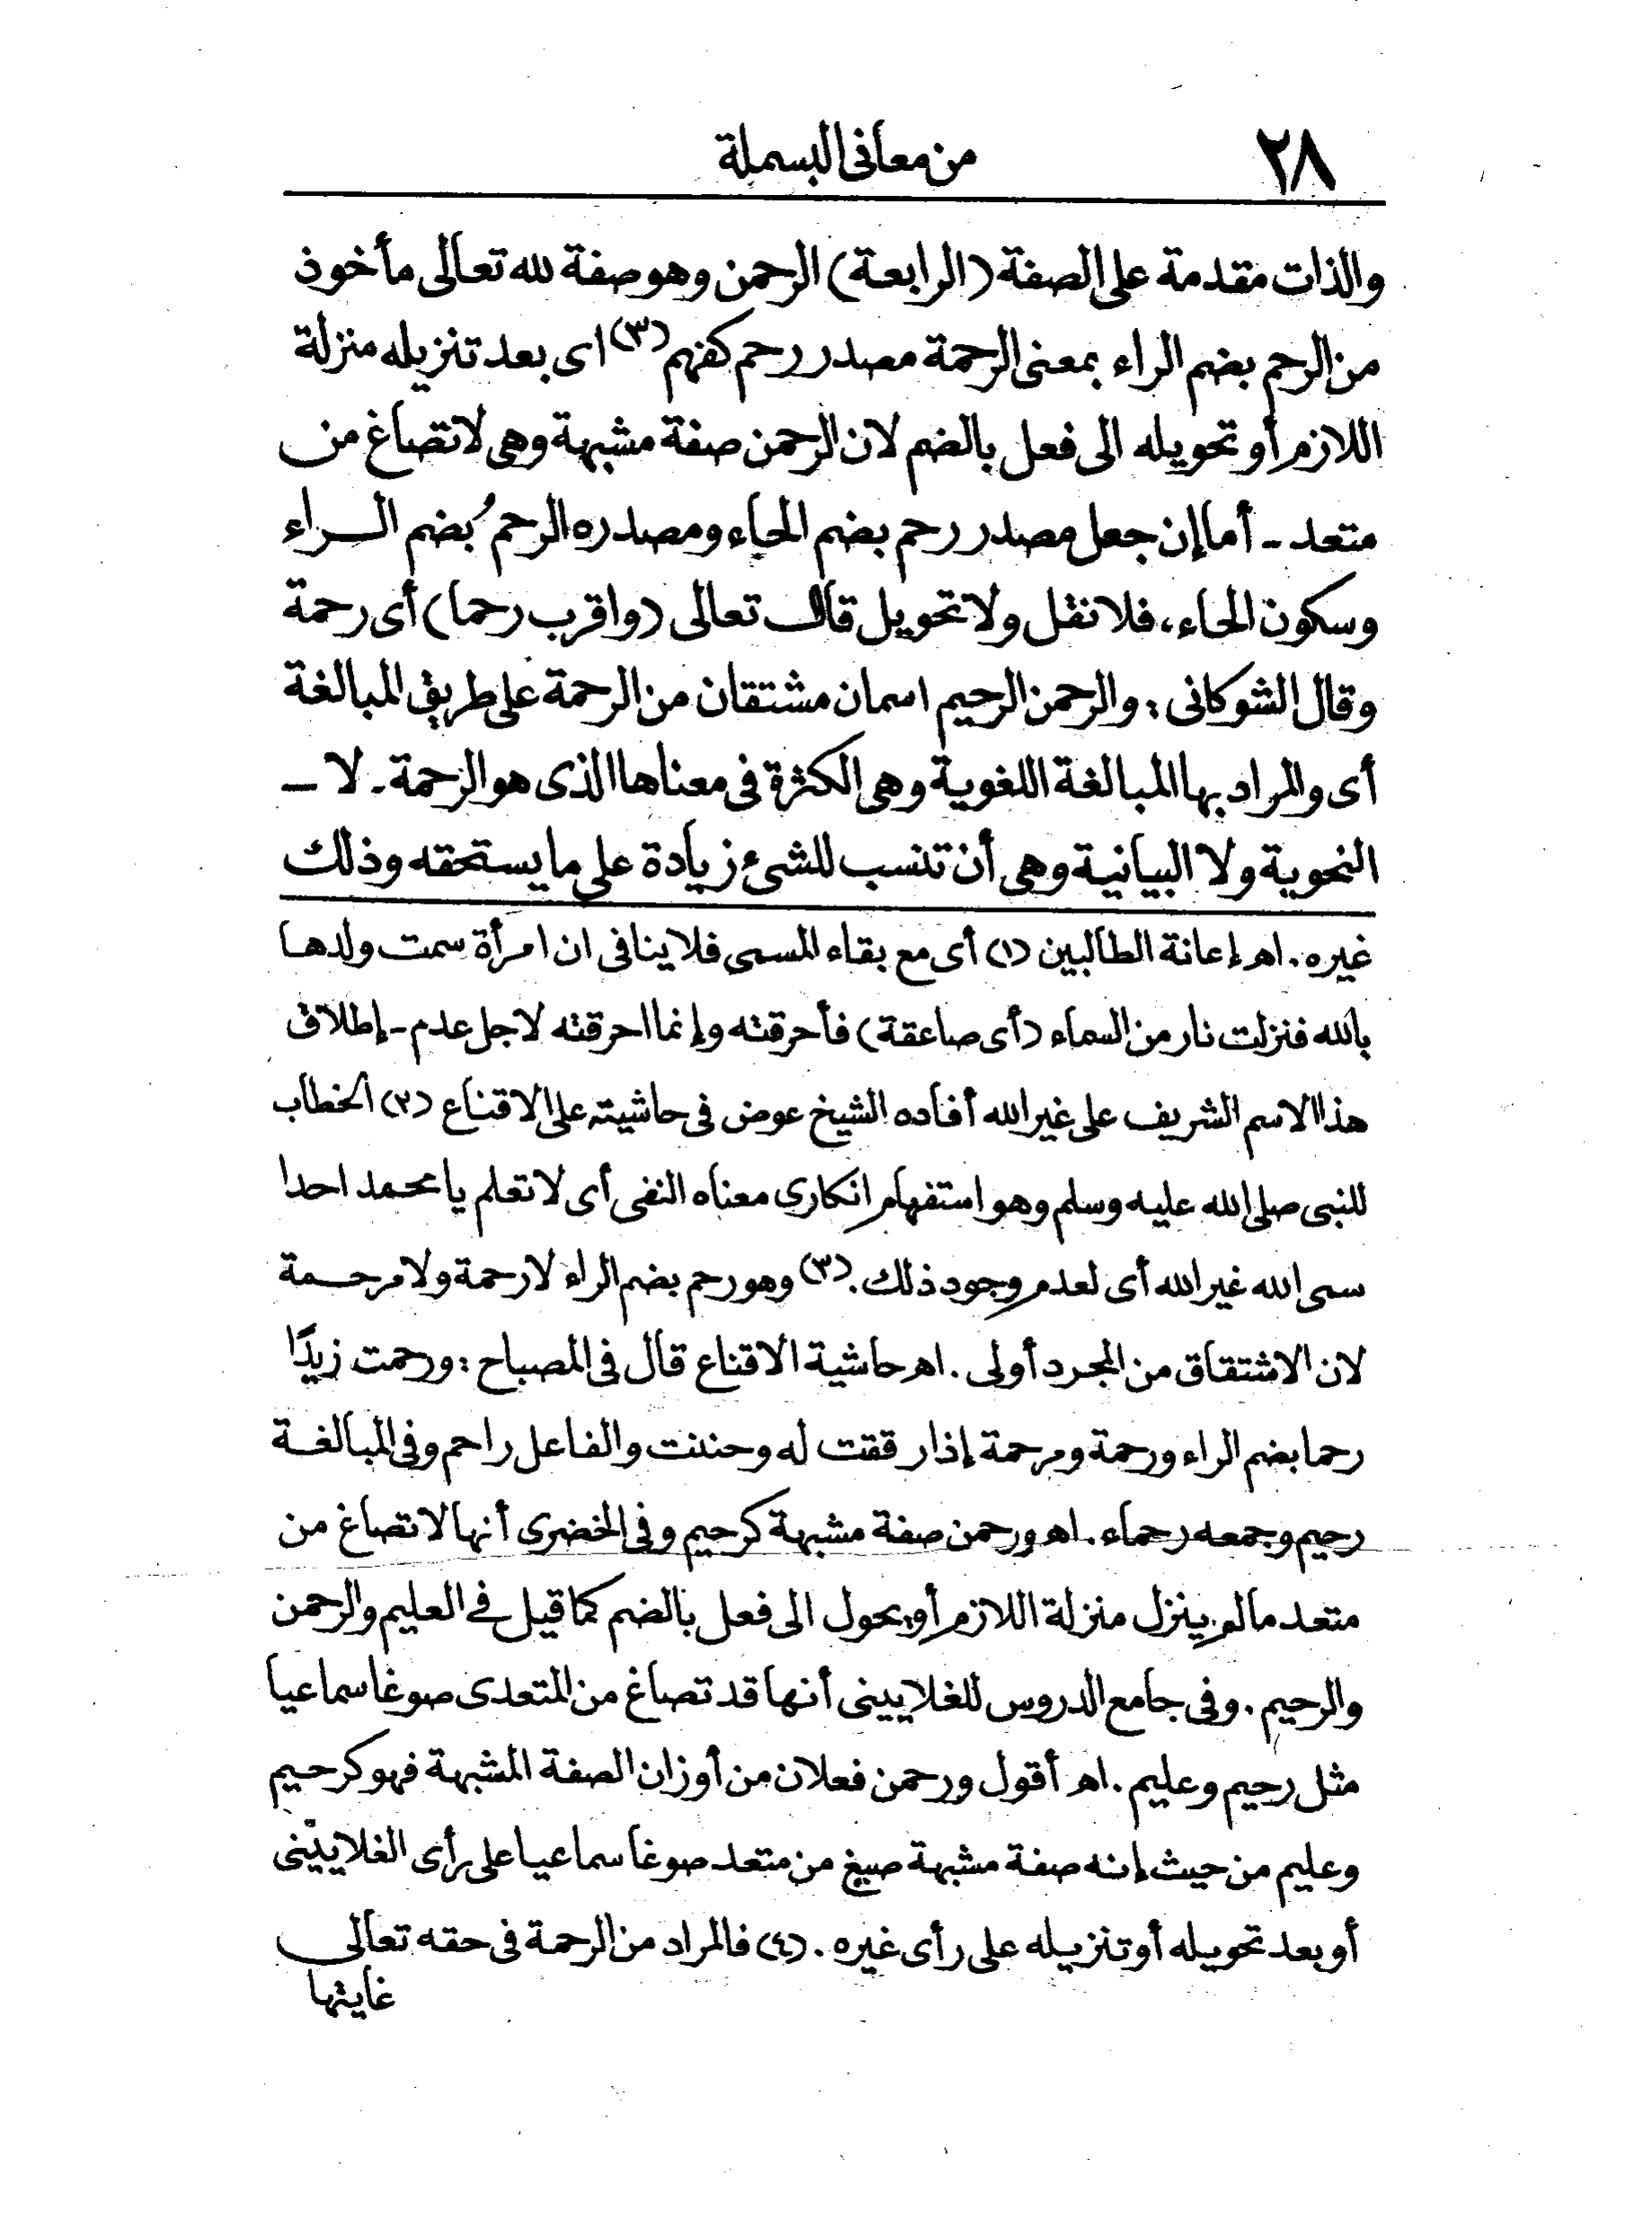 ٢٨
من معانى البسملة
والذات مقدمة على الصفة (الرابعة) الرحمن وهو صفة لله تعالى مأخوذ
من الرحم بضم الراء بمعنى الرحمة مصدر رحم كفهم (٣) اى بعد تنزيله منزلة
اللازم أو تحويله الى فعل بالضم لان الرحمن صفة مشبهة وهى لا تصاغ من
متعد - أما إن جعل مصدر رحم بضم الحاء ومصدره الرحمُ بضم الراء
وسكون الحاء، فلا نقل ولا تحويل قال تعالى (واقرب رحما) أى رحمة
وقال الشوكانى : والرحمن الرحيم اسمان مشتقان من الرحمة على طريق المبالغة
أى والمراد بها المبالغة اللغوية وهى الكثرة فى معناها الذى هو الرحمة - لا -
النحوية ولا البيانية وهى أن تنسب للشئ زيادة على ما يستحقه وذلك
غيره . اهـ إعانة الطالبين (١) أى مع بقاء المسمى فلا ينافى ان امرأة سمت ولدها
بالله فنزلت نار من السماء (أى صاعقة) فأحرقته وإنما احرقته لاجل عدم - إطلاق
هذا الاسم الشريف على غير الله أفاده الشيخ عوض فى حاشيته على الاقناع (٢) الخطاب
للنبى صلى الله عليه وسلم وهو استفهام انكارى معناه النفى أى لا تعلم يا محمد احدا
سمى الله غير الله أى لعدم وجود ذلك . (٣) وهو رحم بضم الراء لا رحمة ولا مرحمة
لان الاشتقاق من المجرد أولى . اهـ حاشية الاقناع قال فى المصباح : ورحمت زيدًا
رحما بضم الراء ورحمة ومرحمة إذا رققت له وحننت والفاعل راحم وفى المبالغة
رحيم وجمعه رحماء . اهـ ورحمن صفة مشبهة كرحيم وفى الخضرى أنها لا تصاغ من
متعد ما لم ينزل منزلة اللازم أو يحول الى فعل بالضم كما قيل فى العليم والرحمن
والرحيم . وفى جامع الدروس للغلايينى أنها قد تصاغ من المتعدى صوغا سماعيا
مثل رحيم وعليم . اهـ أقول ورحمن فعلان من أوزان الصفة المشبهة فهو كرحيم
وعليم من حيث إنه صفة مشبهة صيغ من متعد صوغا سماعيا على رأى الغلايينى
أو بعد تحويله أو تنزيله على رأى غيره . (٤) فالمراد من الرحمة فى حقه تعالى
غايتها